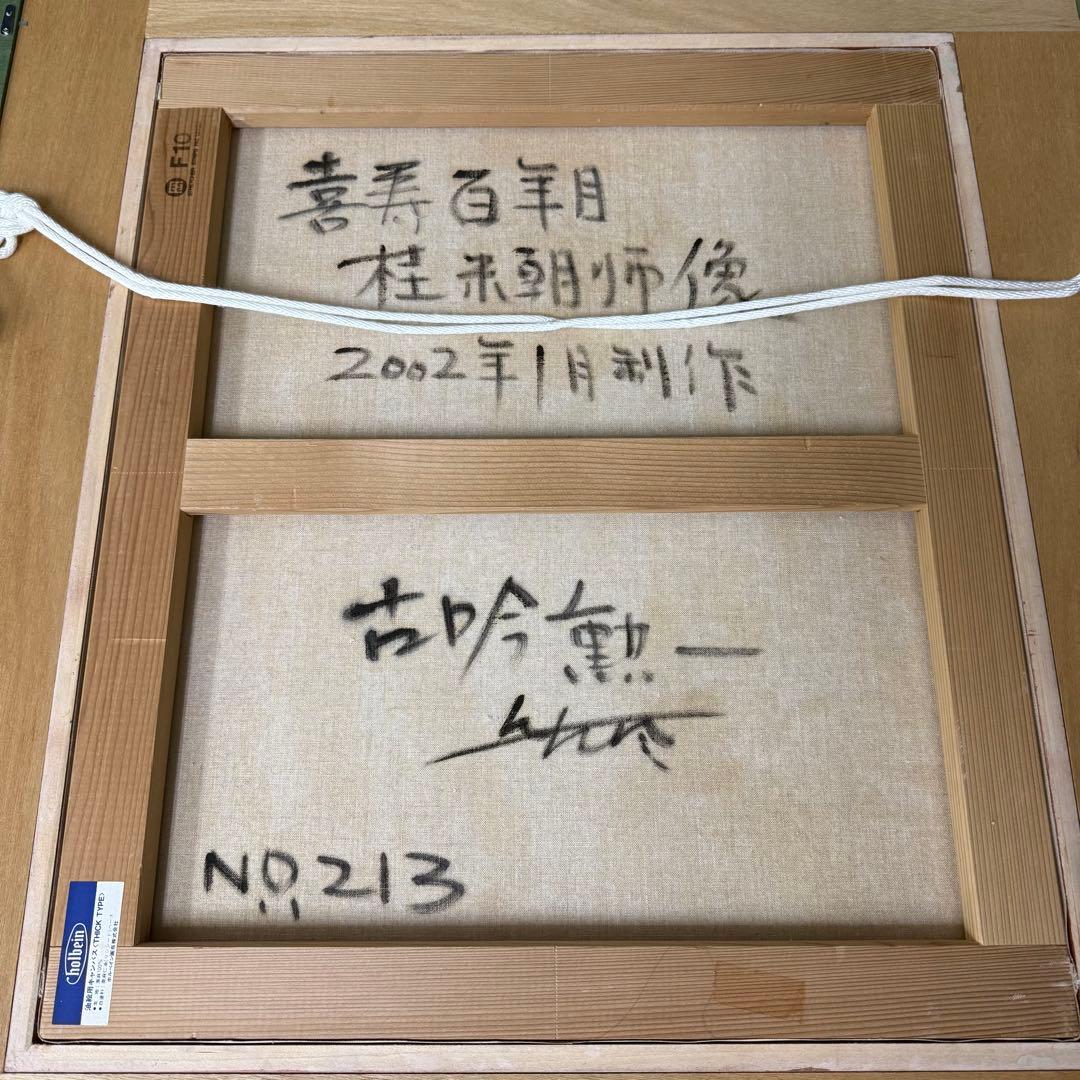 F10
喜寿百年目
桂米朝师像
2002年1月制作
古吟勲一
No.213
holbein
油絵用キャンバス〈THICK TYPE〉